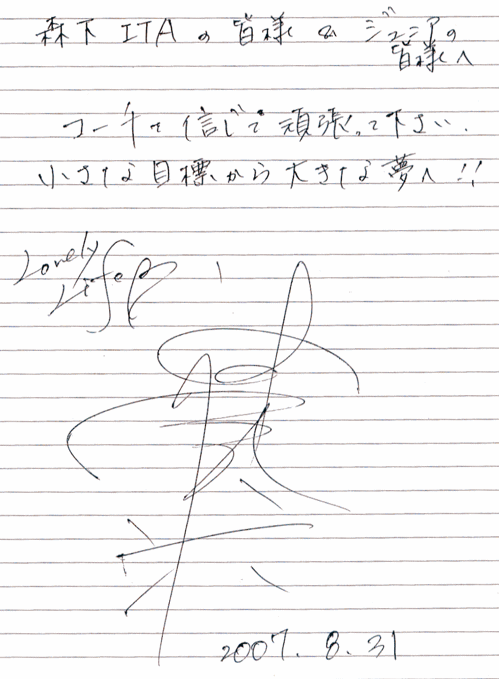 森下 ITA の 皆様 & ジュニアの
皆様へ
コーチを信じて頑張って下さい.
小さな目標から大きな夢へ!!
Lovely
Life
2007. 8. 31